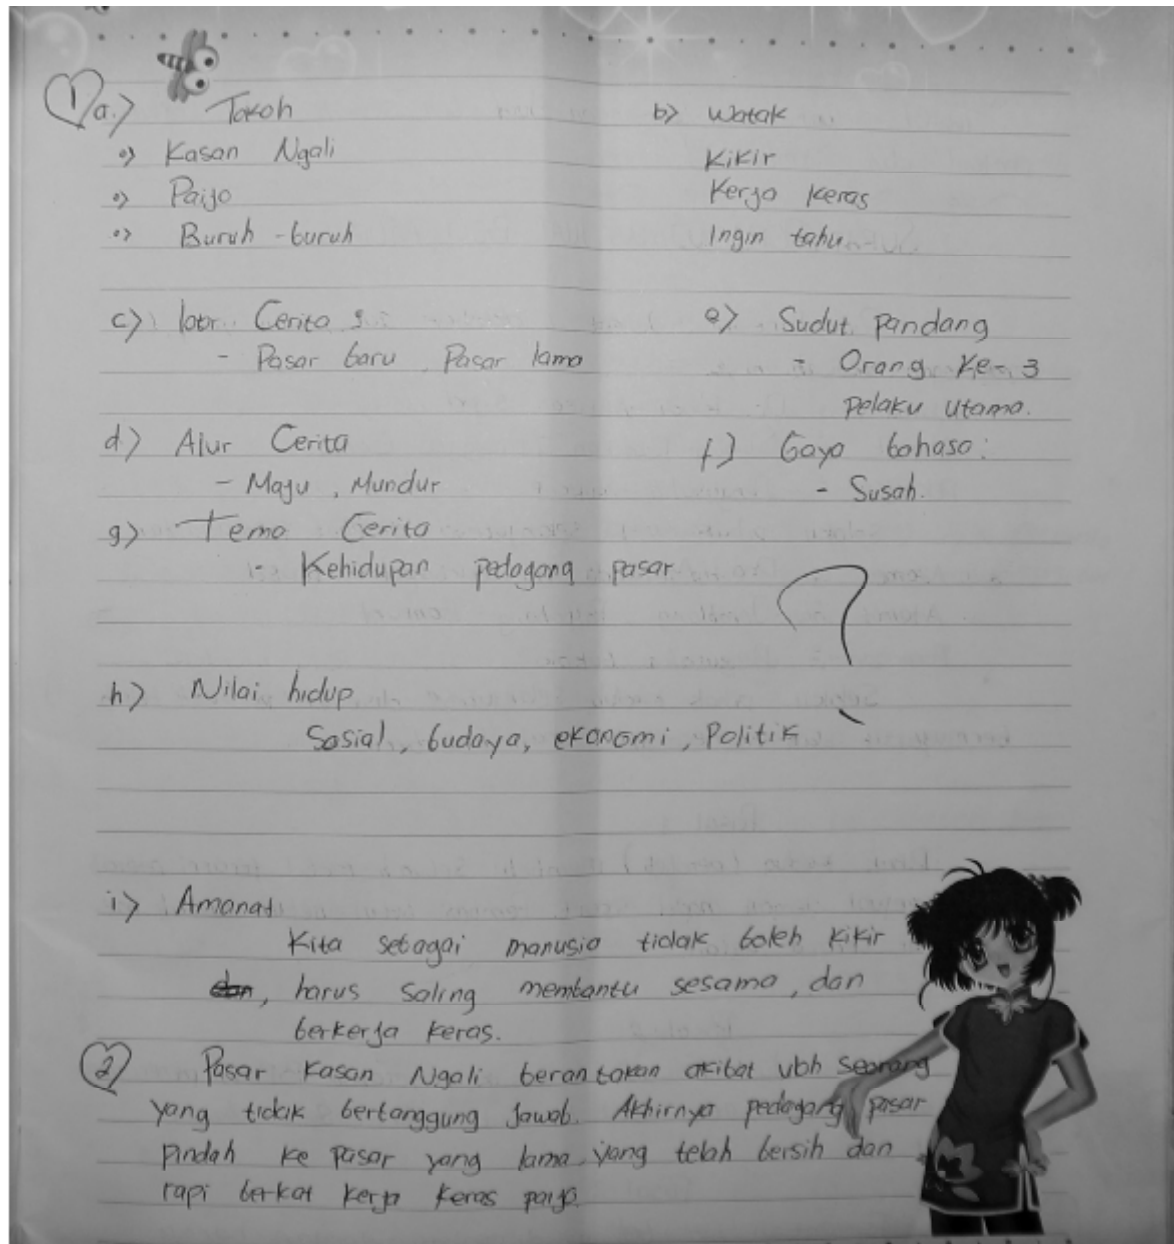 1 a.) Tokoh
b) Watak
o) Kasan Ngali
Kikir
o) Paijo
Kerja keras
o) Buruh-buruh
Ingin tahu
c) latar Cerita :
- Pasar baru, Pasar lama
e) Sudut pandang
- Orang Ke-3
pelaku utama.
d) Alur Cerita
- Maju, Mundur
f) Gaya bahasa:
- Susah.
g) Tema Cerita
- Kehidupan pedagang pasar
?
h) Nilai hidup
Sosial, budaya, ekonomi, Politik
i) Amanat
Kita sebagai manusia tidak boleh kikir
dan, harus saling membantu sesama, dan
berkerja keras.
2 Pasar Kasan Ngali berantakan akibat ubh seorang
yang tidak bertanggung jawab. Akhirnya pedagang pasar
pindah ke pasar yang lama yang telah bersih dan
rapi berkat kerja keras paijo.